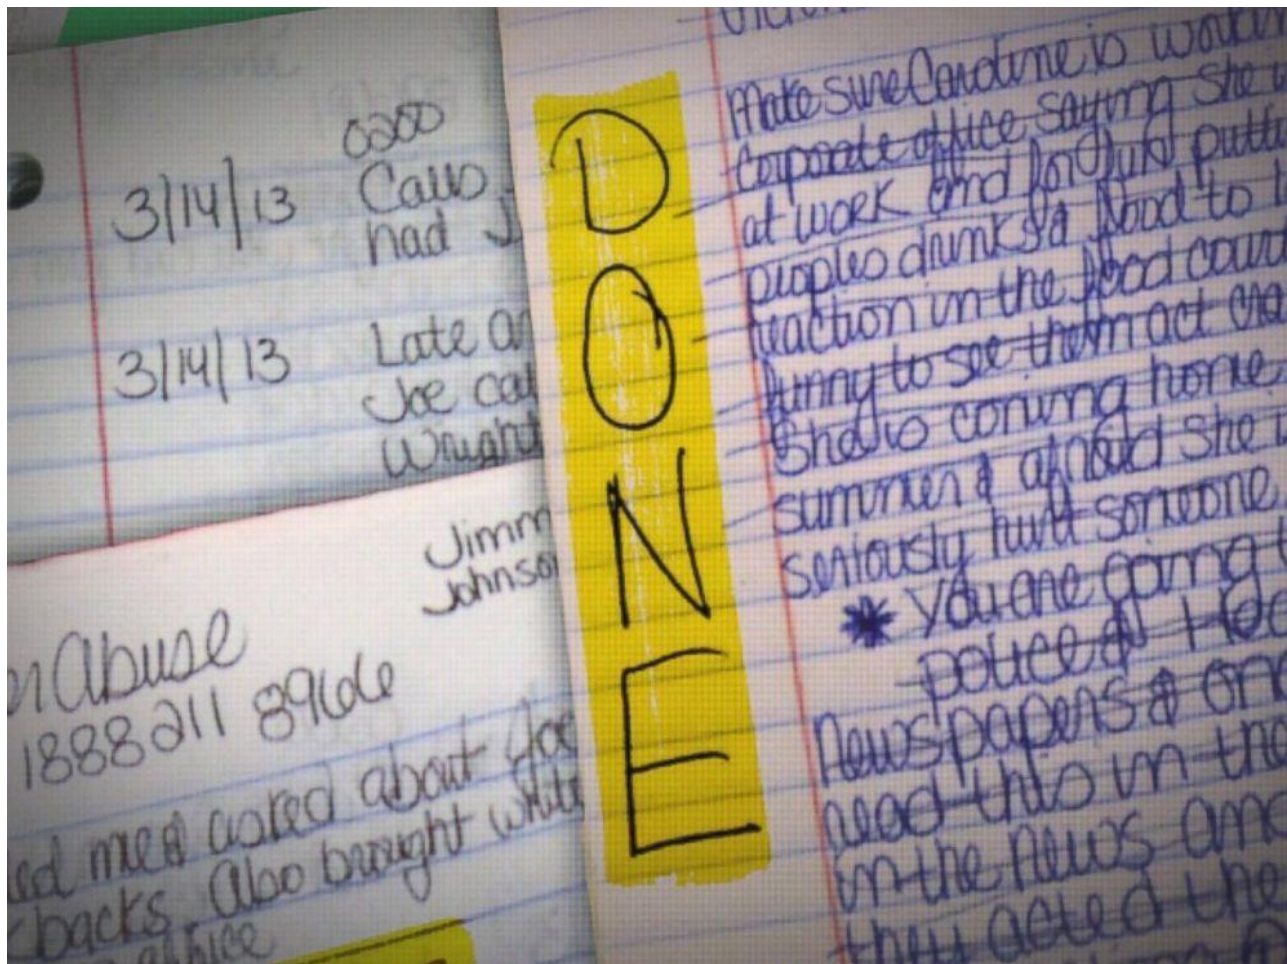 0200
3/14/13 Calls
had J
3/14/13 Late an
Joe cal
Wright
Jimm
Johnson
Abuse
1888 211 8966
me & asked about Joe
backs. Also brought white
office
DONE
Make sure Caroline is workin
corporate office saying she w
at work and for fun puttin
peoples drinks & food to
reaction in the food court
funny to see them act cra
She is coming home
summer & afraid she
seriously hurt someone.
* You are going t
police
Newspapers & on
read this in the
in the news and
they acted the